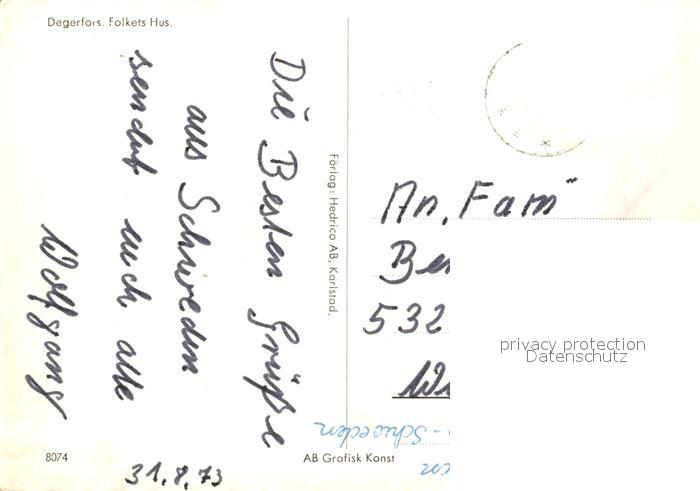 Degerfors. Folkets Hus.
Die Besten Grüße
aus Schweden
sendet euch alle
Wolfgang
31.8.73
Förlag: Hedrico AB, Karlstad.
An, Fam
Be
532
privacy protection
Datenschutz
- Schweden
8074
AB Grafisk Konst